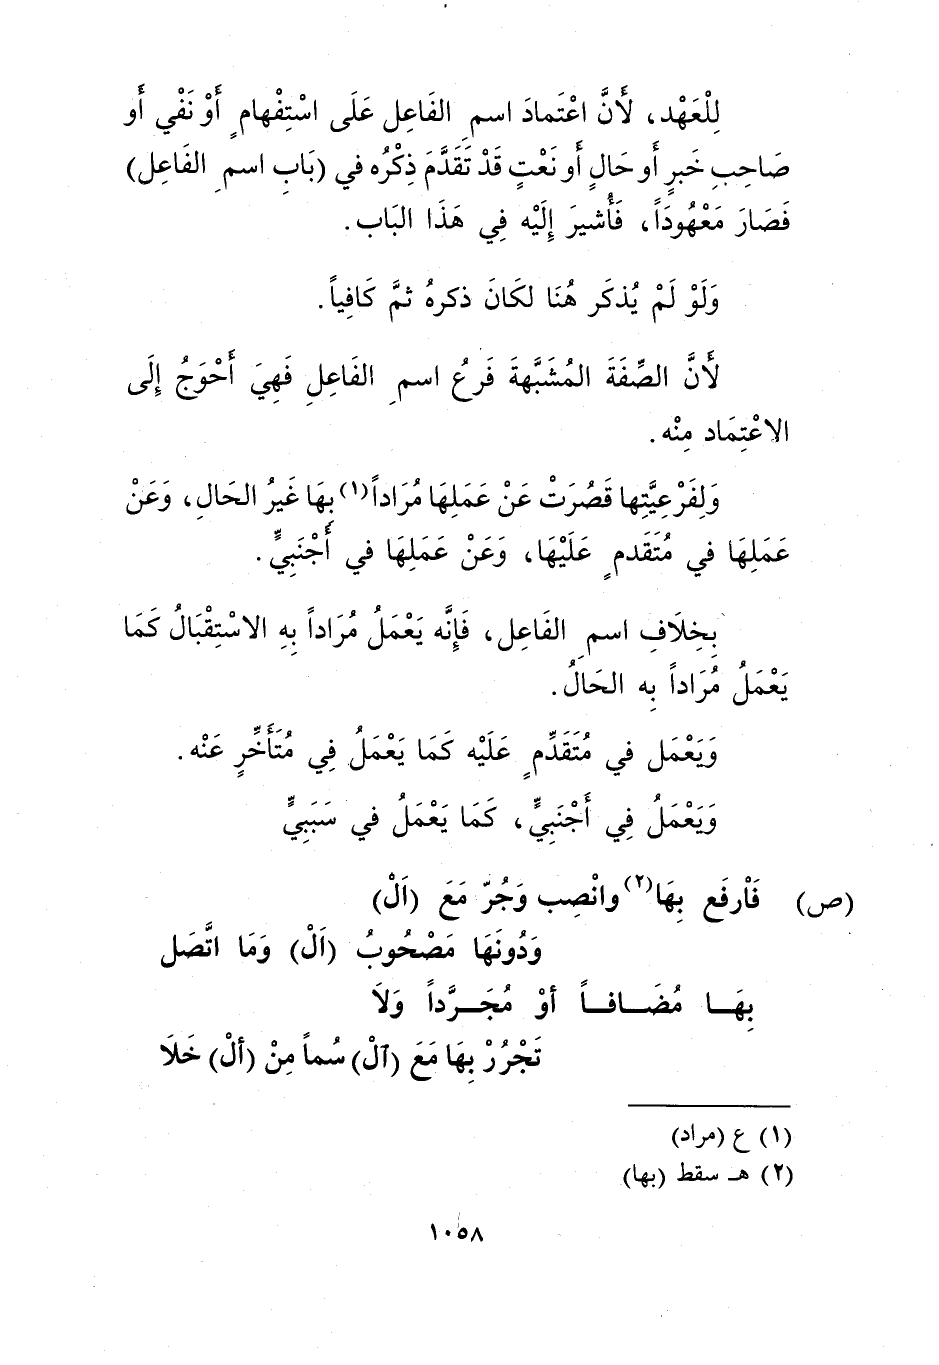 لِلْعَهْد، لَأَنَّ اعْتَمادَ اسم الفَاعِل عَلَى اسْتِفْهام أَوْ نَفْي أَو
صَاحِبِ خَبرٍ أَو حَالٍ أَو نَعْتٍ قَدْ تَقَدَّمَ ذِكْرُه في (بَابِ اسم الفَاعِل)
فَصَارَ مَعْهُودَاً، فَأُشيرَ إِلَيْه فِي هَذَا البَاب.
وَلَوْ لَمْ يُذكَر هُنَا لكَانَ ذكرهُ ثمَّ كَافِياً.
لَأَنَّ الصِّفَةَ المُشَبَّهةَ فَرعُ اسمِ الفَاعِلِ فَهِيَ أَحْوَجُ إِلَى
الاعْتِمَاد مِنْه.
وَلِفَرْعِيَّتِها قَصُرَتْ عَنْ عَمَلِهَا مُرَاداً(١) بِهَا غَيرُ الحَالِ، وَعَنْ
عَمَلِهَا في مُتَقَدمٍ عَلَيْهَا، وَعَنْ عَمَلِهَا في أَجْنَبِيٍّ.
بِخِلَافِ اسمِ الفَاعِل، فَإِنَّه يَعْمَلُ مُرَاداً بِهِ الاسْتِقْبَالُ كَمَا
يَعْمَلُ مُرَاداً بِه الحَالُ.
وَيَعْمَل في مُتَقَدِّمٍ عَلَيْه كَمَا يَعْمَلُ فِي مُتَأَخِّرٍ عَنْه.
وَيَعْمَلُ فِي أَجْنَبِيٍّ، كَمَا يَعْمَلُ في سَبَبِيٍّ
(ص) فَاْرفَع بِهَا(٢) وانْصِب وَجُرّ مَعَ (اَلْ)
وَدُونَهَا مَصْحُوبُ (اَلْ) وَمَا اتَّصَل
بِهَـا مُضَـافـاً أوْ مُجَـرَّداً وَلاَ
تَجْرُرْ بِهَا مَعَ (اَلْ) سُماً مِنْ (أَلْ) خَلَا
(١) ع (مراد)
(٢) هـ سقط (بها)
١٠٥٨